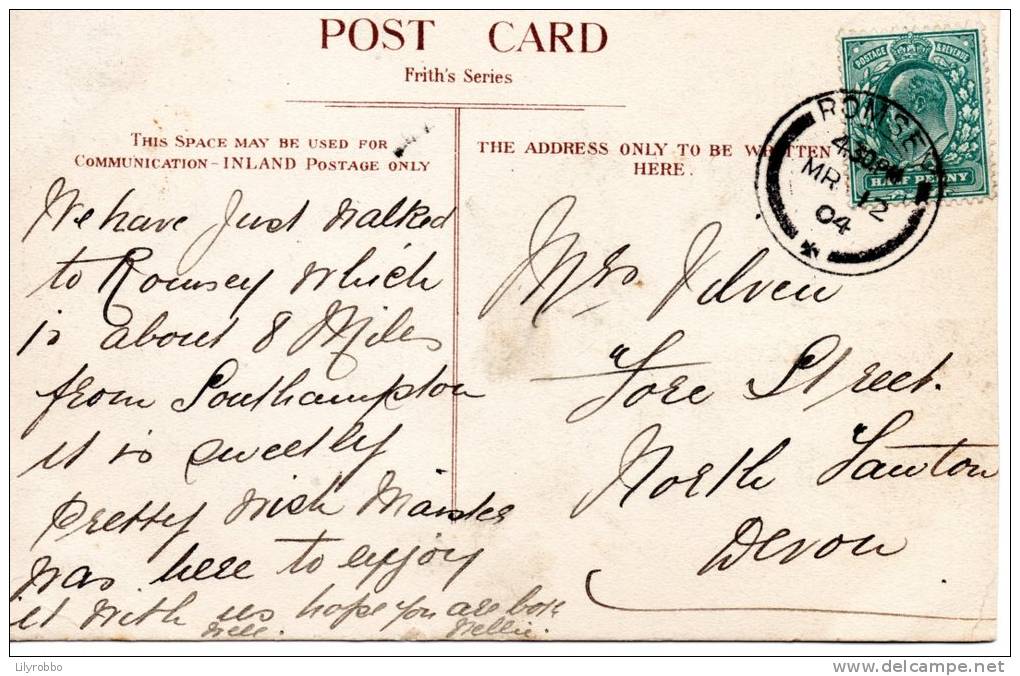 POST CARD
Frith's Series
THIS SPACE MAY BE USED FOR
COMMUNICATION - INLAND POSTAGE ONLY
We have Just Walked
to Romsey which
is about 8 Miles
from Southampton
it is sweetly
pretty wish Maister
was here to enjoy
it with us hope you are both
well. Nellie.
THE ADDRESS ONLY TO BE WRITTEN
HERE.
POSTAGE & REVENUE
HALF PENNY
ROMSEY
4.30PM
MR 12
04
Mrs
Fore Street.
North Tawton
Devon
Lilyrobbo
delcampe.net